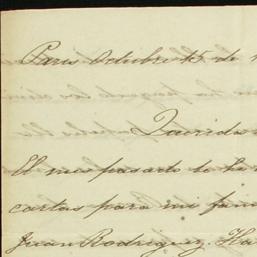 Paris Octubre 15 de
Querida
El mes pasado te he
cartas para mi fam
Juan Rodriguez. Ha